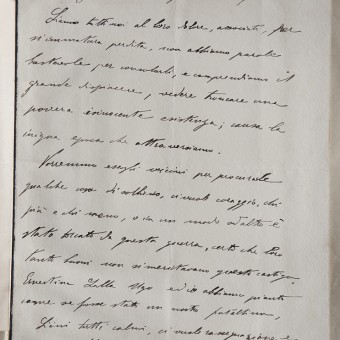 Siamo tutti noi al loro dolore, associati, per
sì immatura perdita, non abbiamo parole
bastevole per consolarli, e comprendiamo il
grande dispiacere, vedere troncare una
povera innocente esistenza; causa la
iniqua epoca che attraversiamo.
Vorremmo essergli vicini per procurarle
qualche cosa di sollievo, ci vuole coraggio, chi
più e chi meno, o in un modo o l'altro è
stato toccato da questa guerra, certo che loro
tanto buoni non si meritavano questo castigo,
Ernestina Zalla Ugo ed io abbiamo pianto
come se fosse stato un nostro fratellino,
tutti calmi, ci vuole rassegnazione e